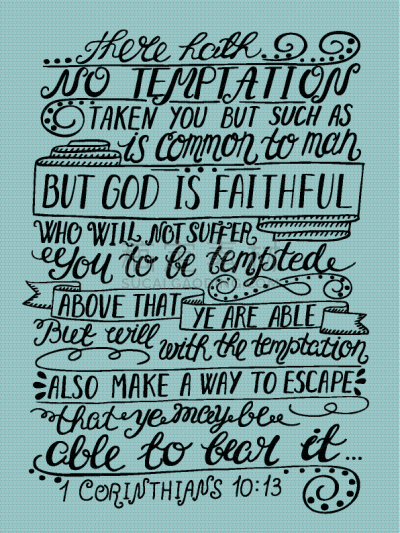 there hath
NO TEMPTATION
TAKEN YOU BUT SUCH AS
is common to man
BUT GOD IS FAITHFUL
WHO WILL NOT SUFFER
You to be tempted
ABOVE THAT
YE ARE ABLE
But will
with the temptation
ALSO MAKE A WAY TO ESCAPE
that ye may be
able to bear it...
1 CORINTHIANS 10:13